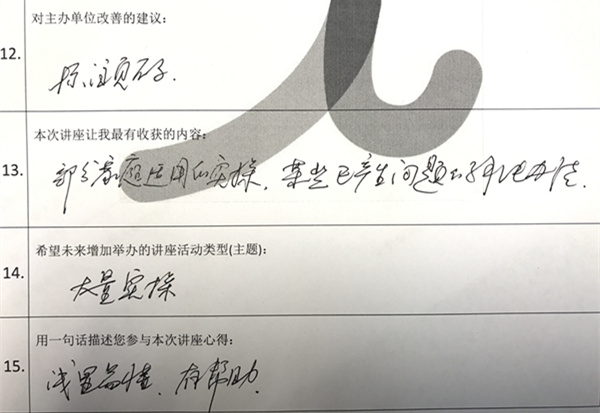 对主办单位改善的建议:
12.
标注页码.
本次讲座让我最有收获的内容:
13.
部分家庭运用的实操, 某些已产生问题的纠正办法.
希望未来增加举办的讲座活动类型(主题):
14.
大量实操
用一句话描述您参与本次讲座心得:
15.
有帮助.